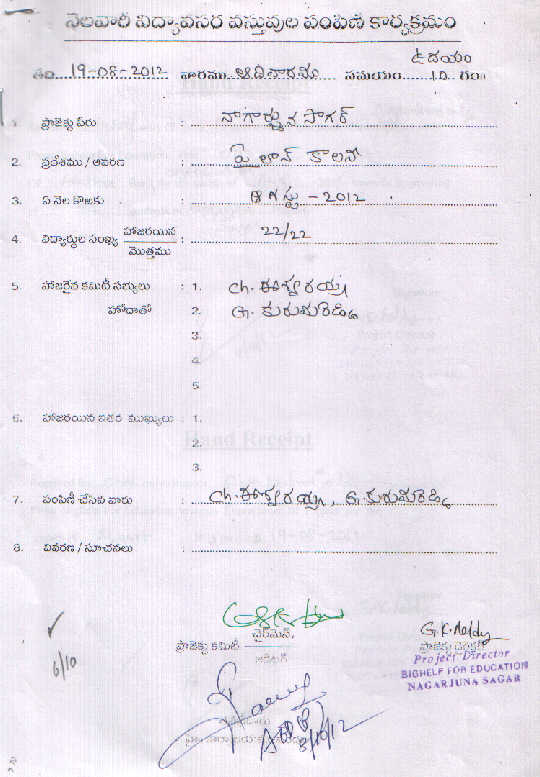 నెలవారీ విద్యావసర వస్తువుల పంపిణీ కార్యక్రమం
ఉదయం
తేది. 19-08-2012 వారము ఆదివారము సమయం 10 గం.
1. ప్రాజెక్టు పేరు : నాగార్జున సాగర్
2. ప్రదేశము / ఆవరణ : పైలాన్ కాలని
3. ఏ నెల కొరకు : ఆగస్టు - 2012
4. విద్యార్థుల సంఖ్య హాజరయిన : 22/22
మొత్తము
5. హాజరైన కమిటీ సభ్యులు : 1. Ch. ఈశ్వరయ్య
హోదాతో 2. G. కురుమరెడ్డి
3.
4.
5.
6. హాజరయిన ఇతర ముఖ్యులు : 1.
2.
Hand Receipt
3.
7. పంపిణీ చేసిన వారు : Ch. ఈశ్వరయ్య, G. కురుమరెడ్డి
8. వివరణ / సూచనలు :
19-08-2012
ఛైర్మన్,
ప్రాజెక్టు కమిటీ
G.K.Reddy
ప్రాజెక్టు డైరెక్టర్
Project Director
BIGHELP FOR EDUCATION
NAGARJUNA SAGAR
6/10
3/10/12